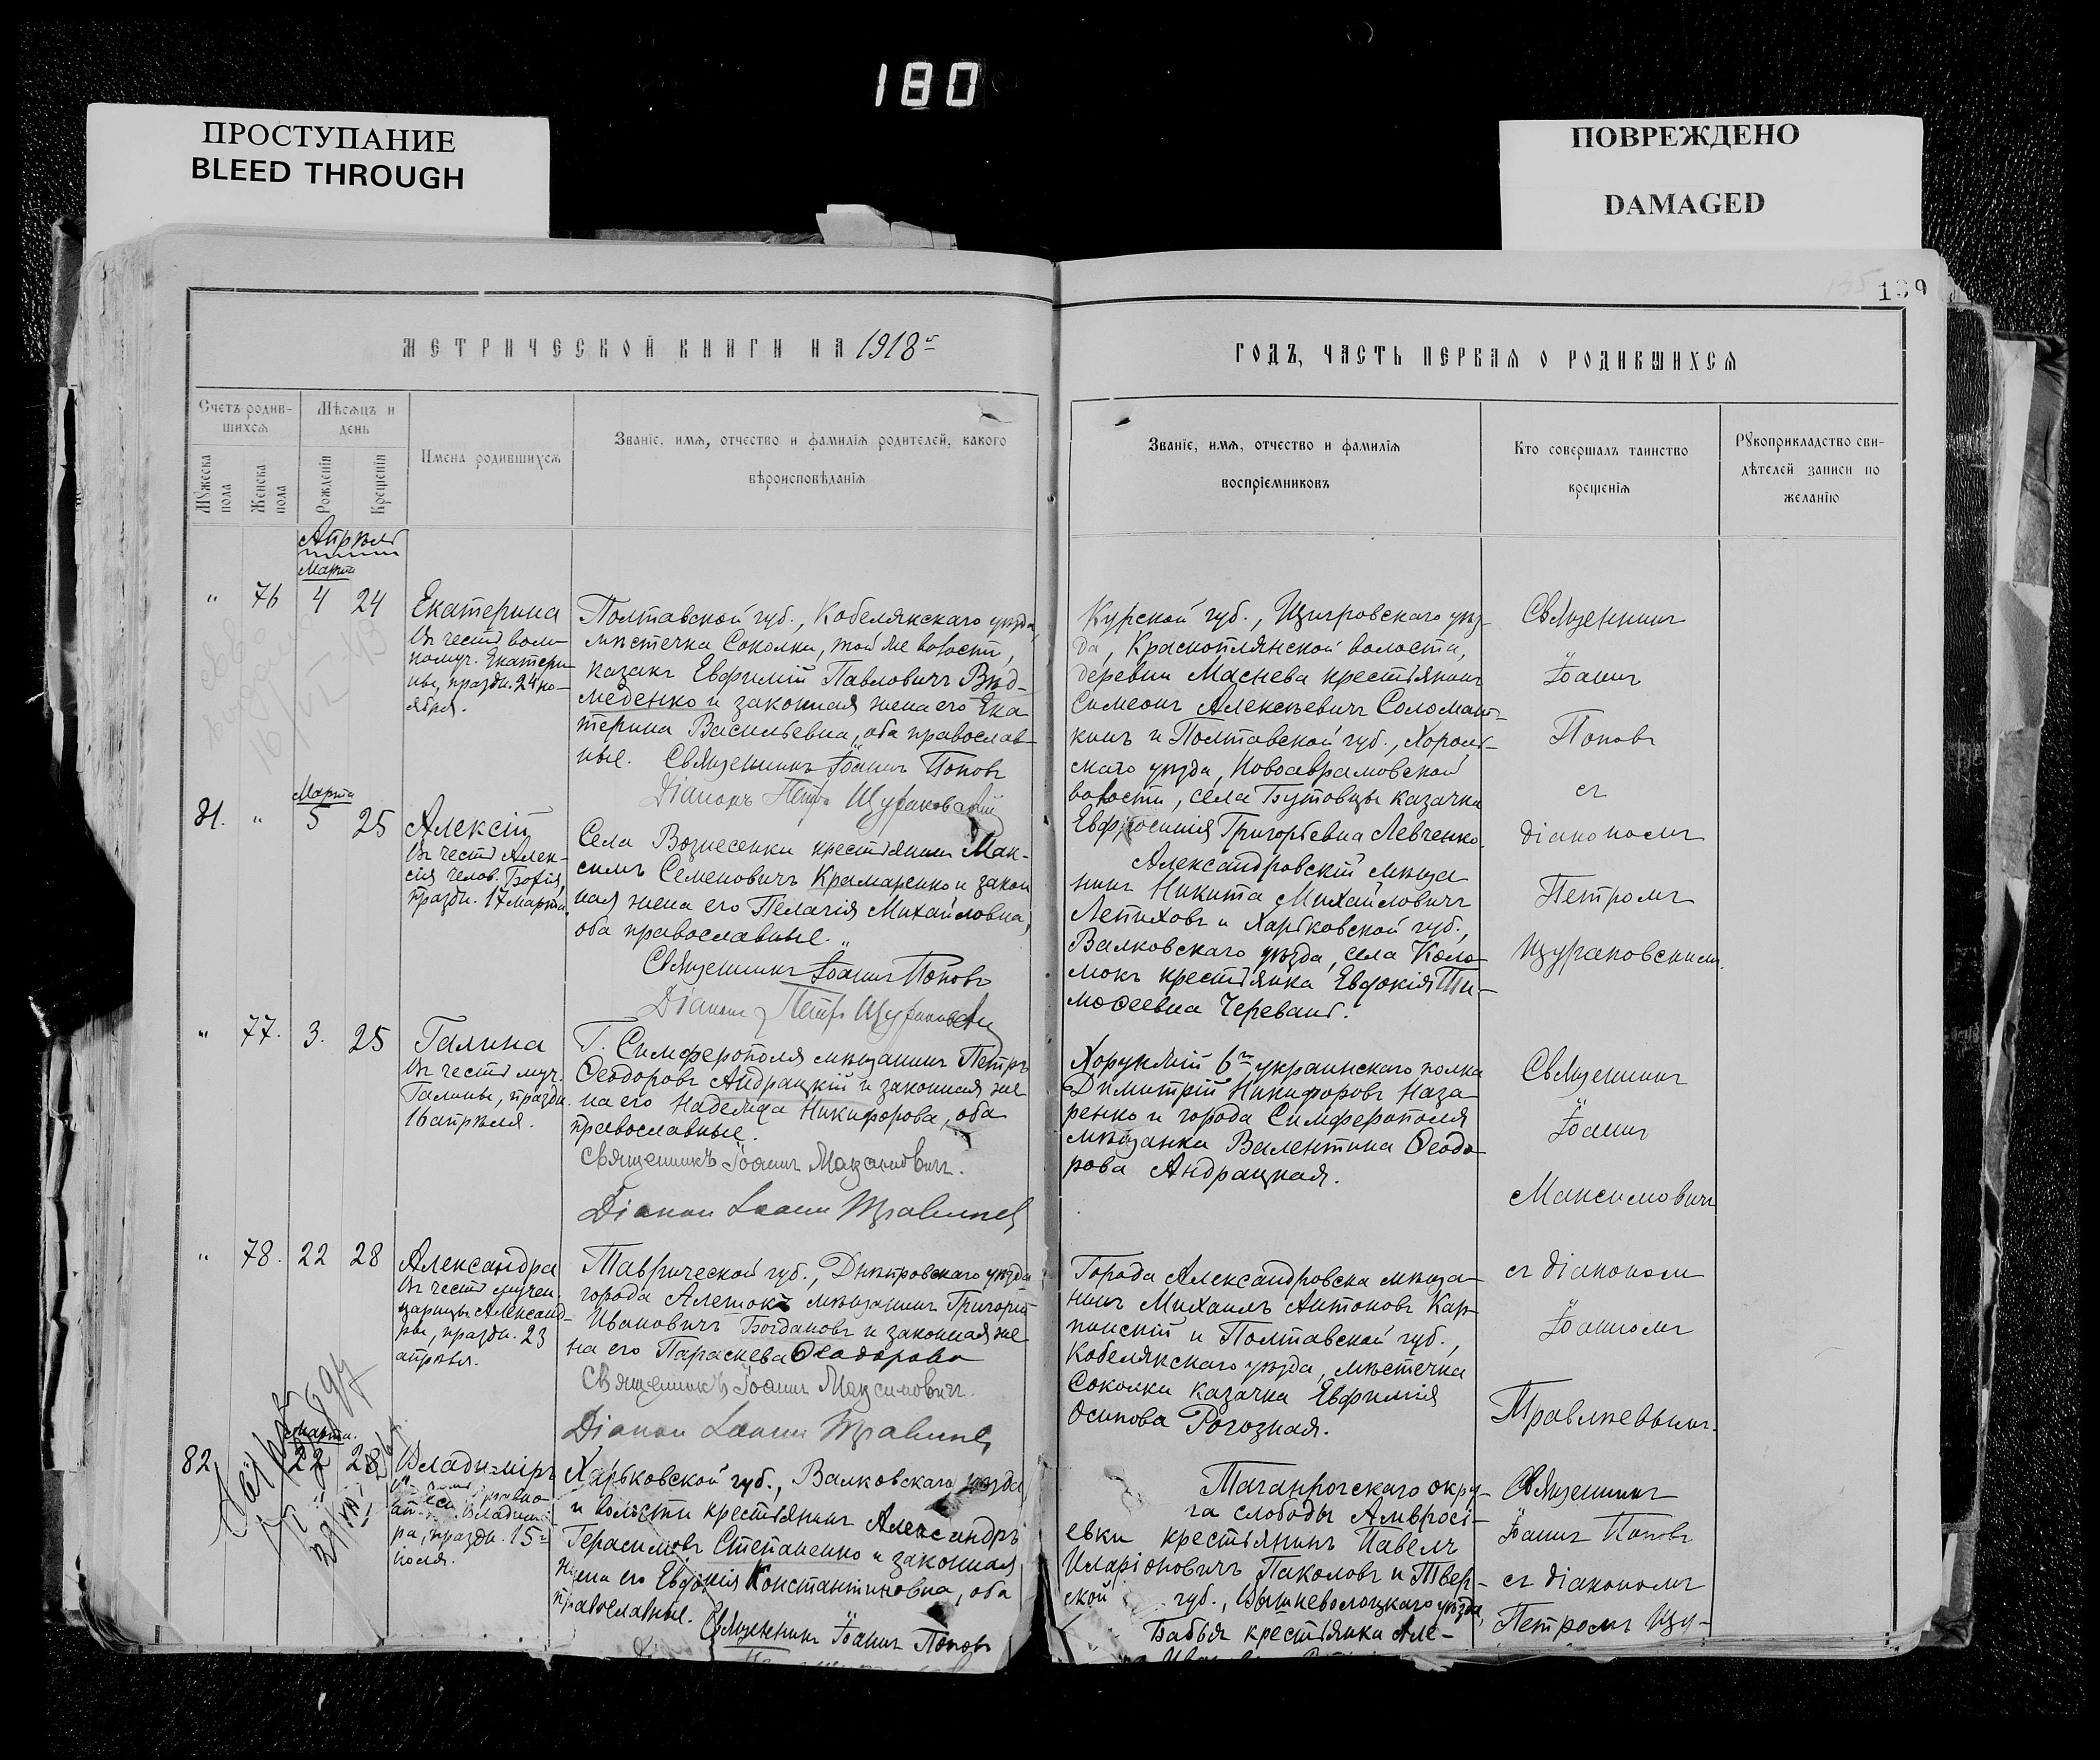 180
ПРОСТУПАНИЕ
BLEED THROUGH
ПОВРЕЖДЕНО
DAMAGED
139
МЕТРИЧЕСКОЙ КНИГИ НА 1918й
ГОДЪ, ЧАСТЬ ПЕРВАЯ О РОДИВШИХСЯ
Счетъ родив-
шихся
Мѣсяцъ и
день
Мужеска
пола
Женска
пола
Рожденія
Крещенія
Имена родившихся
Званіе, имя, отчество и фамилія родителей, какого
вѣроисповѣданія
Званіе, имя, отчество и фамилія
воспріемниковъ
Кто совершалъ таинство
крещенія
Рукоприкладство сви-
дѣтелей записи по
желанію
Апрѣль
Марта
" 76 4 24
Екатерина
Въ честь вели-
комуч. Екатери-
ны, праздн. 24 но-
ября.
Полтавской губ., Кобелякскаго уѣзда,
мѣстечка Соколки, той же волости,
казакъ Евфимій Павловичъ Вѣд-
меденко и законная жена его Ека-
терина Васильевна, оба православ-
ные. Священникъ Іоаннъ Поповъ
Діаконъ Петръ Щурановскій
Курской губ., Щигровскаго уѣз-
да, Краснополянской волости,
деревни Маснева крестьянинъ
Симеонъ Алексѣевичъ Соломат-
кинъ и Полтавской губ., Хороль-
скаго уѣзда, Новоаврамовской
волости, села Бутовцы казачка
Евфросинія Григорьевна Левченко.
Священникъ
Іоаннъ
Поповъ
съ
діакономъ
Петромъ
Щурановскимъ.
Марта
81. " 5 25
Алексій
Въ честь Алек-
сія челов. Божія,
праздн. 17 марта.
Села Вознесенки крестьянинъ Мак-
симъ Семеновичъ Крамаренко и закон-
ная жена его Пелагія Михайловна,
оба православные.
Священникъ Іоаннъ Поповъ
Діаконъ Петръ Щурановскій
Александровскій мѣща-
нинъ Никита Михайловичъ
Лепиховъ и Харьковской губ.,
Валковскаго уѣзда, села Коло-
мокъ крестьянка Евдокія Ти-
моѳеевна Черевань.
" 77. 3. 25
Галина
Въ честь муч.
Галины, праздн.
16 апрѣля.
Г. Симферополя мѣщанинъ Петръ
Ѳеодоровъ Андрацкій и законная же-
на его Надежда Никифорова, оба
православные.
Священникъ Іоаннъ Максимовичъ.
Діаконъ Іоаннъ
Хорунжій 6го украинскаго полка
Димитрій Никифоровъ Наза-
ренко и города Симферополя
мѣщанка Валентина Ѳеодо-
рова Андрацкая.
Священникъ
Іоаннъ
Максимовичъ
съ діакономъ
Іоанномъ
" 78. 22 28
Александра
Въ честь мучен.
царицы Александ-
ры, праздн. 23
апрѣля.
Таврической губ., Днѣпровскаго уѣзда
города Алешокъ мѣщанинъ Григорій
Ивановичъ Богдановъ и законная же-
на его Параскева Ѳеодорова
Священникъ Іоаннъ Максимовичъ.
Діаконъ Іоаннъ
Города Александровска мѣща-
нинъ Михаилъ Антоновъ Кар-
пинскій и Полтавской губ.,
Кобелякскаго уѣзда, мѣстечка
Соколки казачка Евфимія
Осипова Рогозная.
Марта.
82 " 22 28
Владиміръ
ра, праздн. 15го
іюля.
Харьковской губ., Валковскаго уѣзда
и волости крестьянинъ Александръ
Герасимовъ Степаненко и законная
жена его Евдокія Константиновна, оба
православные. Священникъ Іоаннъ Поповъ
Таганрогскаго окру-
га слободы Амвросі-
евки крестьянинъ Павелъ
Иларіоновичъ Паколовъ и Твер-
ской губ., Вышневолоцкаго уѣзда,
Бабья крестьянка Але-
Священникъ
Іоаннъ Поповъ
съ діакономъ
Петромъ Щу-